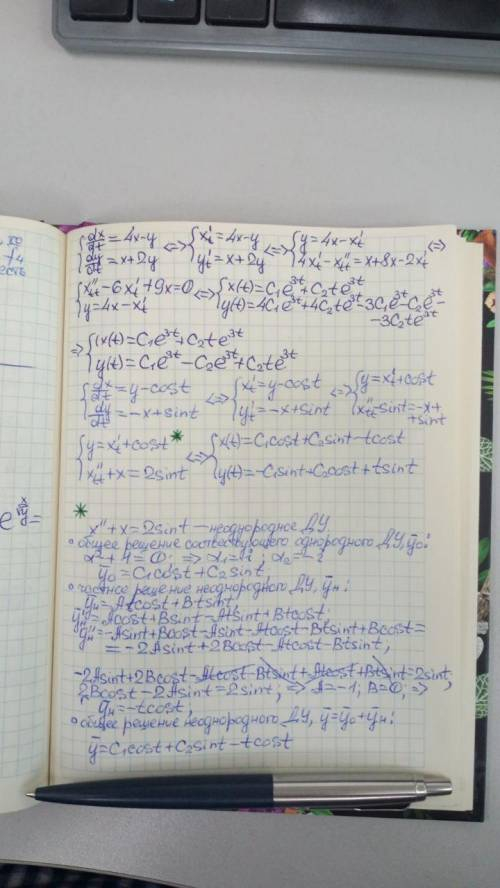 {dx/dt = 4x-y <=> {x't = 4x-y <=> {y = 4x-x't <=>
{dy/dt = x+2y {y't = x+2y {4x't-x''tt = x+8x-2x't
{x''tt-6x't+9x=0 <=> {x(t)=C₁e^3t+C₂te^3t
{y=4x-x't {y(t)=4C₁e^3t+4C₂te^3t-3C₁e^3t-C₂e^3t-
-3C₂te^3t
=> {x(t)=C₁e^3t+C₂te^3t
{y(t)=C₁e^3t-C₂e^3t+C₂te^3t
{dx/dt = y-cost <=> {x't=y-cost <=> {y=x't+cost
{dy/dt = -x+sint {y't=-x+sint {x''tt-sint=-x+
+sint
{y=x't+cost * <=> {x(t)=C₁cost+C₂sint-tcost
{x''tt+x=2sint {y(t)=-C₁sint+C₂cost+tsint
*
x''+x=2sint — неоднородное ДУ
• общее решение соотвествующего однородного ДУ, ȳ₀:
ȳ₀=C₁cost+C₂sint
• частное решение неоднородного ДУ, ȳн:
ȳн=Atcost+Btsint
ȳ'н=Acost+Bsint-Atsint+Btcost
ȳ''н=-Asint+Bcost-Asint-Atcost-Btsint+Bcost=
=-2Asint+2Bcost-Atcost-Btsint;
-2Asint+2Bcost-Atcost-Btsint+Atcost+Btsint=2sint;
2Bcost-2Asint=2sint; => A=-1; B=0; =>
ȳн=-tcost;
• общее решение неоднородного ДУ, ȳ=ȳ₀+ȳн:
ȳ=C₁cost+C₂sint-tcost
e^
y=